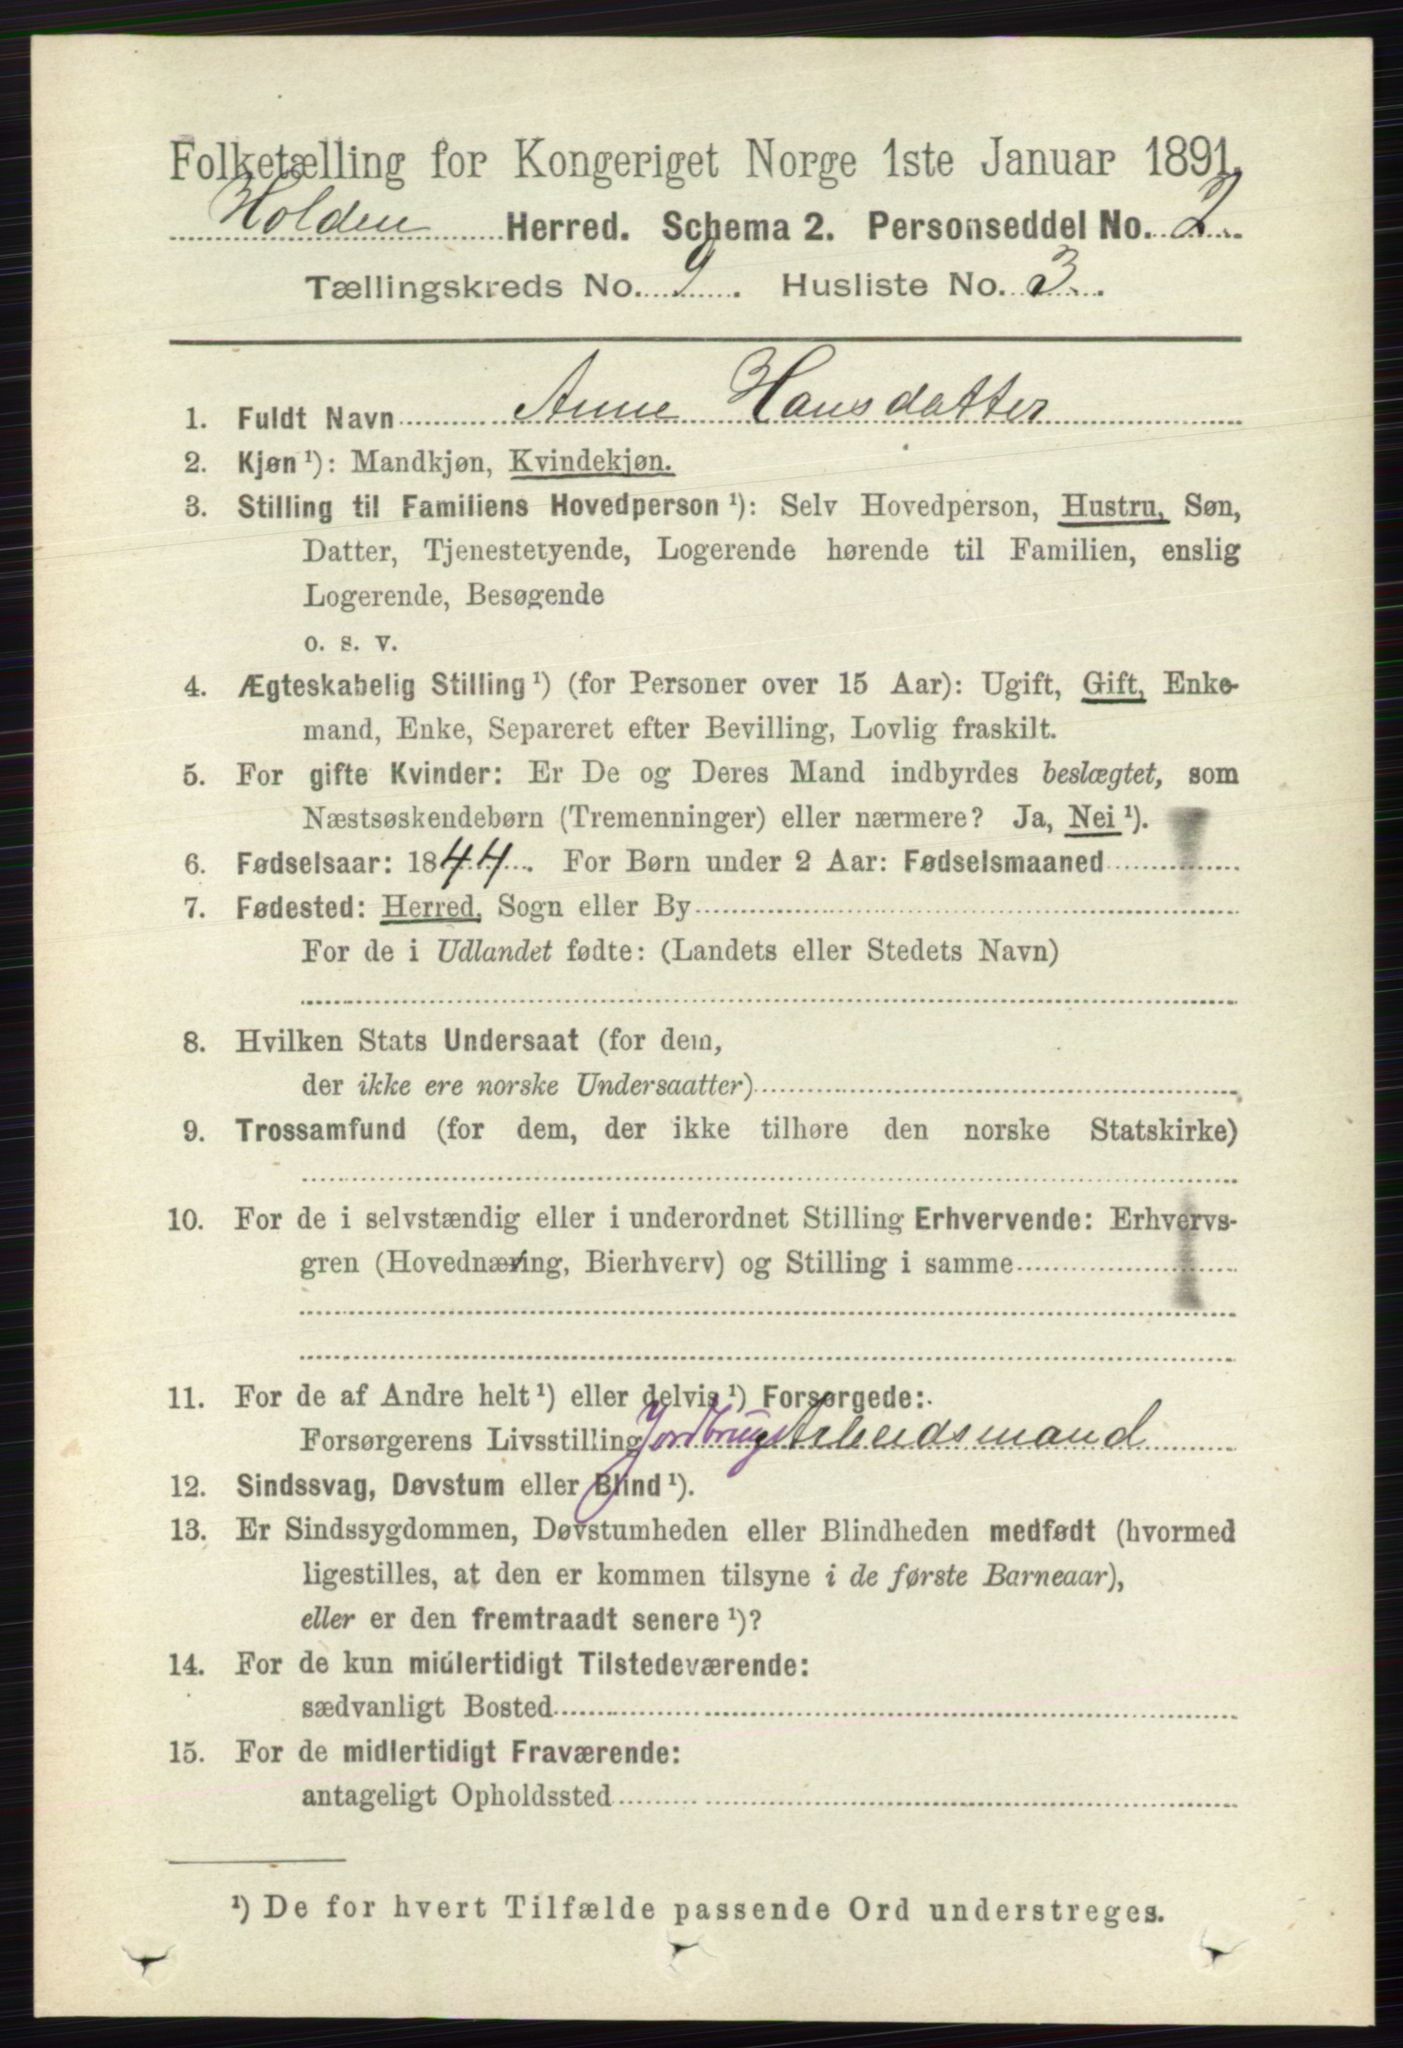 Folketælling for Kongeriget Norge 1ste Januar 1891.
Holden Herred. Schema 2. Personseddel No. 2.
Tællingskreds No. 9. Husliste No. 3.
1. Fuldt Navn Anne Hansdatter
2. Kjøn ¹): Mandkjøn, Kvindekjøn.
3. Stilling til Familiens Hovedperson ¹): Selv Hovedperson, Hustru, Søn,
Datter, Tjenestetyende, Logerende hørende til Familien, enslig
Logerende, Besøgende
o. s. v.
4. Ægteskabelig Stilling ¹) (for Personer over 15 Aar): Ugift, Gift, Enke-
mand, Enke, Separeret efter Bevilling, Lovlig fraskilt.
5. For gifte Kvinder: Er De og Deres Mand indbyrdes beslægtet, som
Næstsøskendebørn (Tremenninger) eller nærmere? Ja, Nei ¹).
6. Fødselsaar: 1844. For Børn under 2 Aar: Fødselsmaaned
7. Fødested: Herred, Sogn eller By
For de i Udlandet fødte: (Landets eller Stedets Navn)
8. Hvilken Stats Undersaat (for dem,
der ikke ere norske Undersaatter)
9. Trossamfund (for dem, der ikke tilhøre den norske Statskirke)
10. For de i selvstændig eller i underordnet Stilling Erhvervende: Erhvervs-
gren (Hovednæring, Bierhverv) og Stilling i samme
11. For de af Andre helt ¹) eller delvis ¹) Forsørgede:
Forsørgerens Livsstilling Jordbrugs Arbeidsmand
12. Sindssvag, Døvstum eller Blind ¹).
13. Er Sindssygdommen, Døvstumheden eller Blindheden medfødt (hvormed
ligestilles, at den er kommen tilsyne i de første Barneaar),
eller er den fremtraadt senere ¹)?
14. For de kun midlertidigt Tilstedeværende:
sædvanligt Bosted
15. For de midlertidigt Fraværende:
antageligt Opholdssted
¹) De for hvert Tilfælde passende Ord understreges.